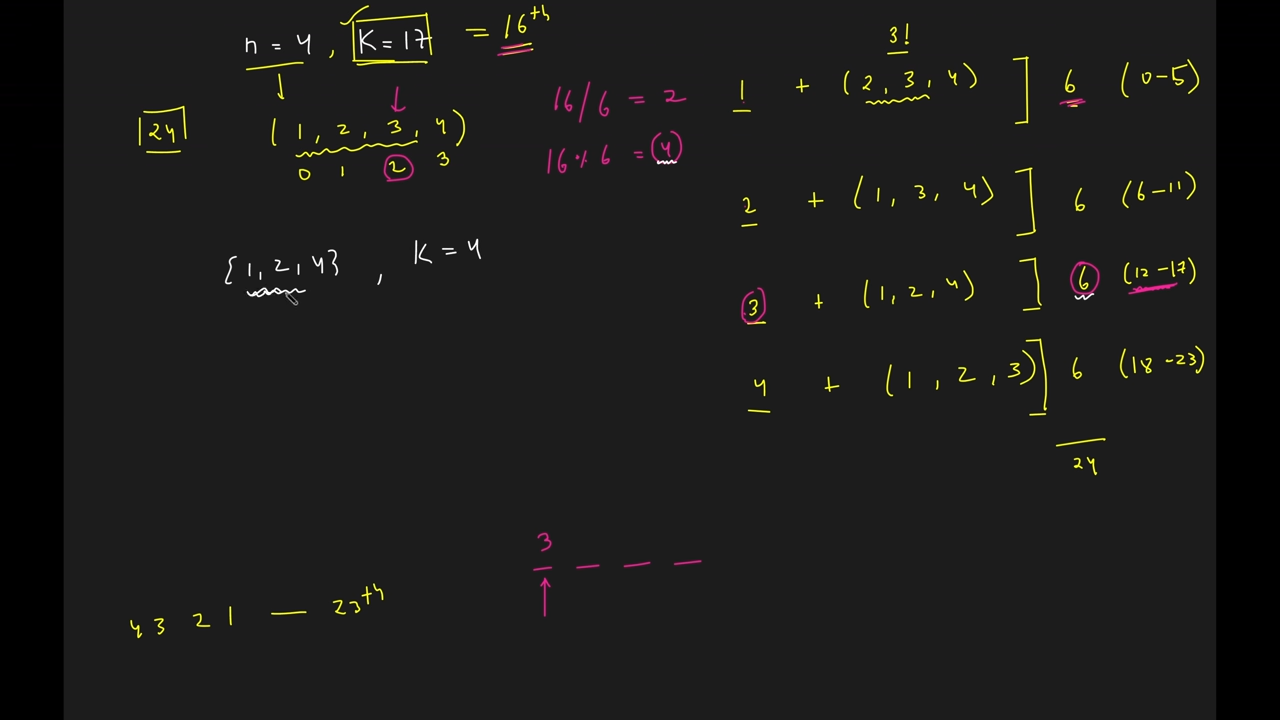 n = 4 , K = 17 = 16th
24
( 1, 2, 3, 4 )
0 1 2 3
16/6 = 2
16 % 6 = 4
{1, 2, 4} , K = 4
3!
1 + (2, 3, 4) ] 6 (0-5)
2 + (1, 3, 4) ] 6 (6-11)
3 + (1, 2, 4) ] 6 (12-17)
4 + (1, 2, 3) ] 6 (18-23)
24
3
4 3 2 1 — 23th